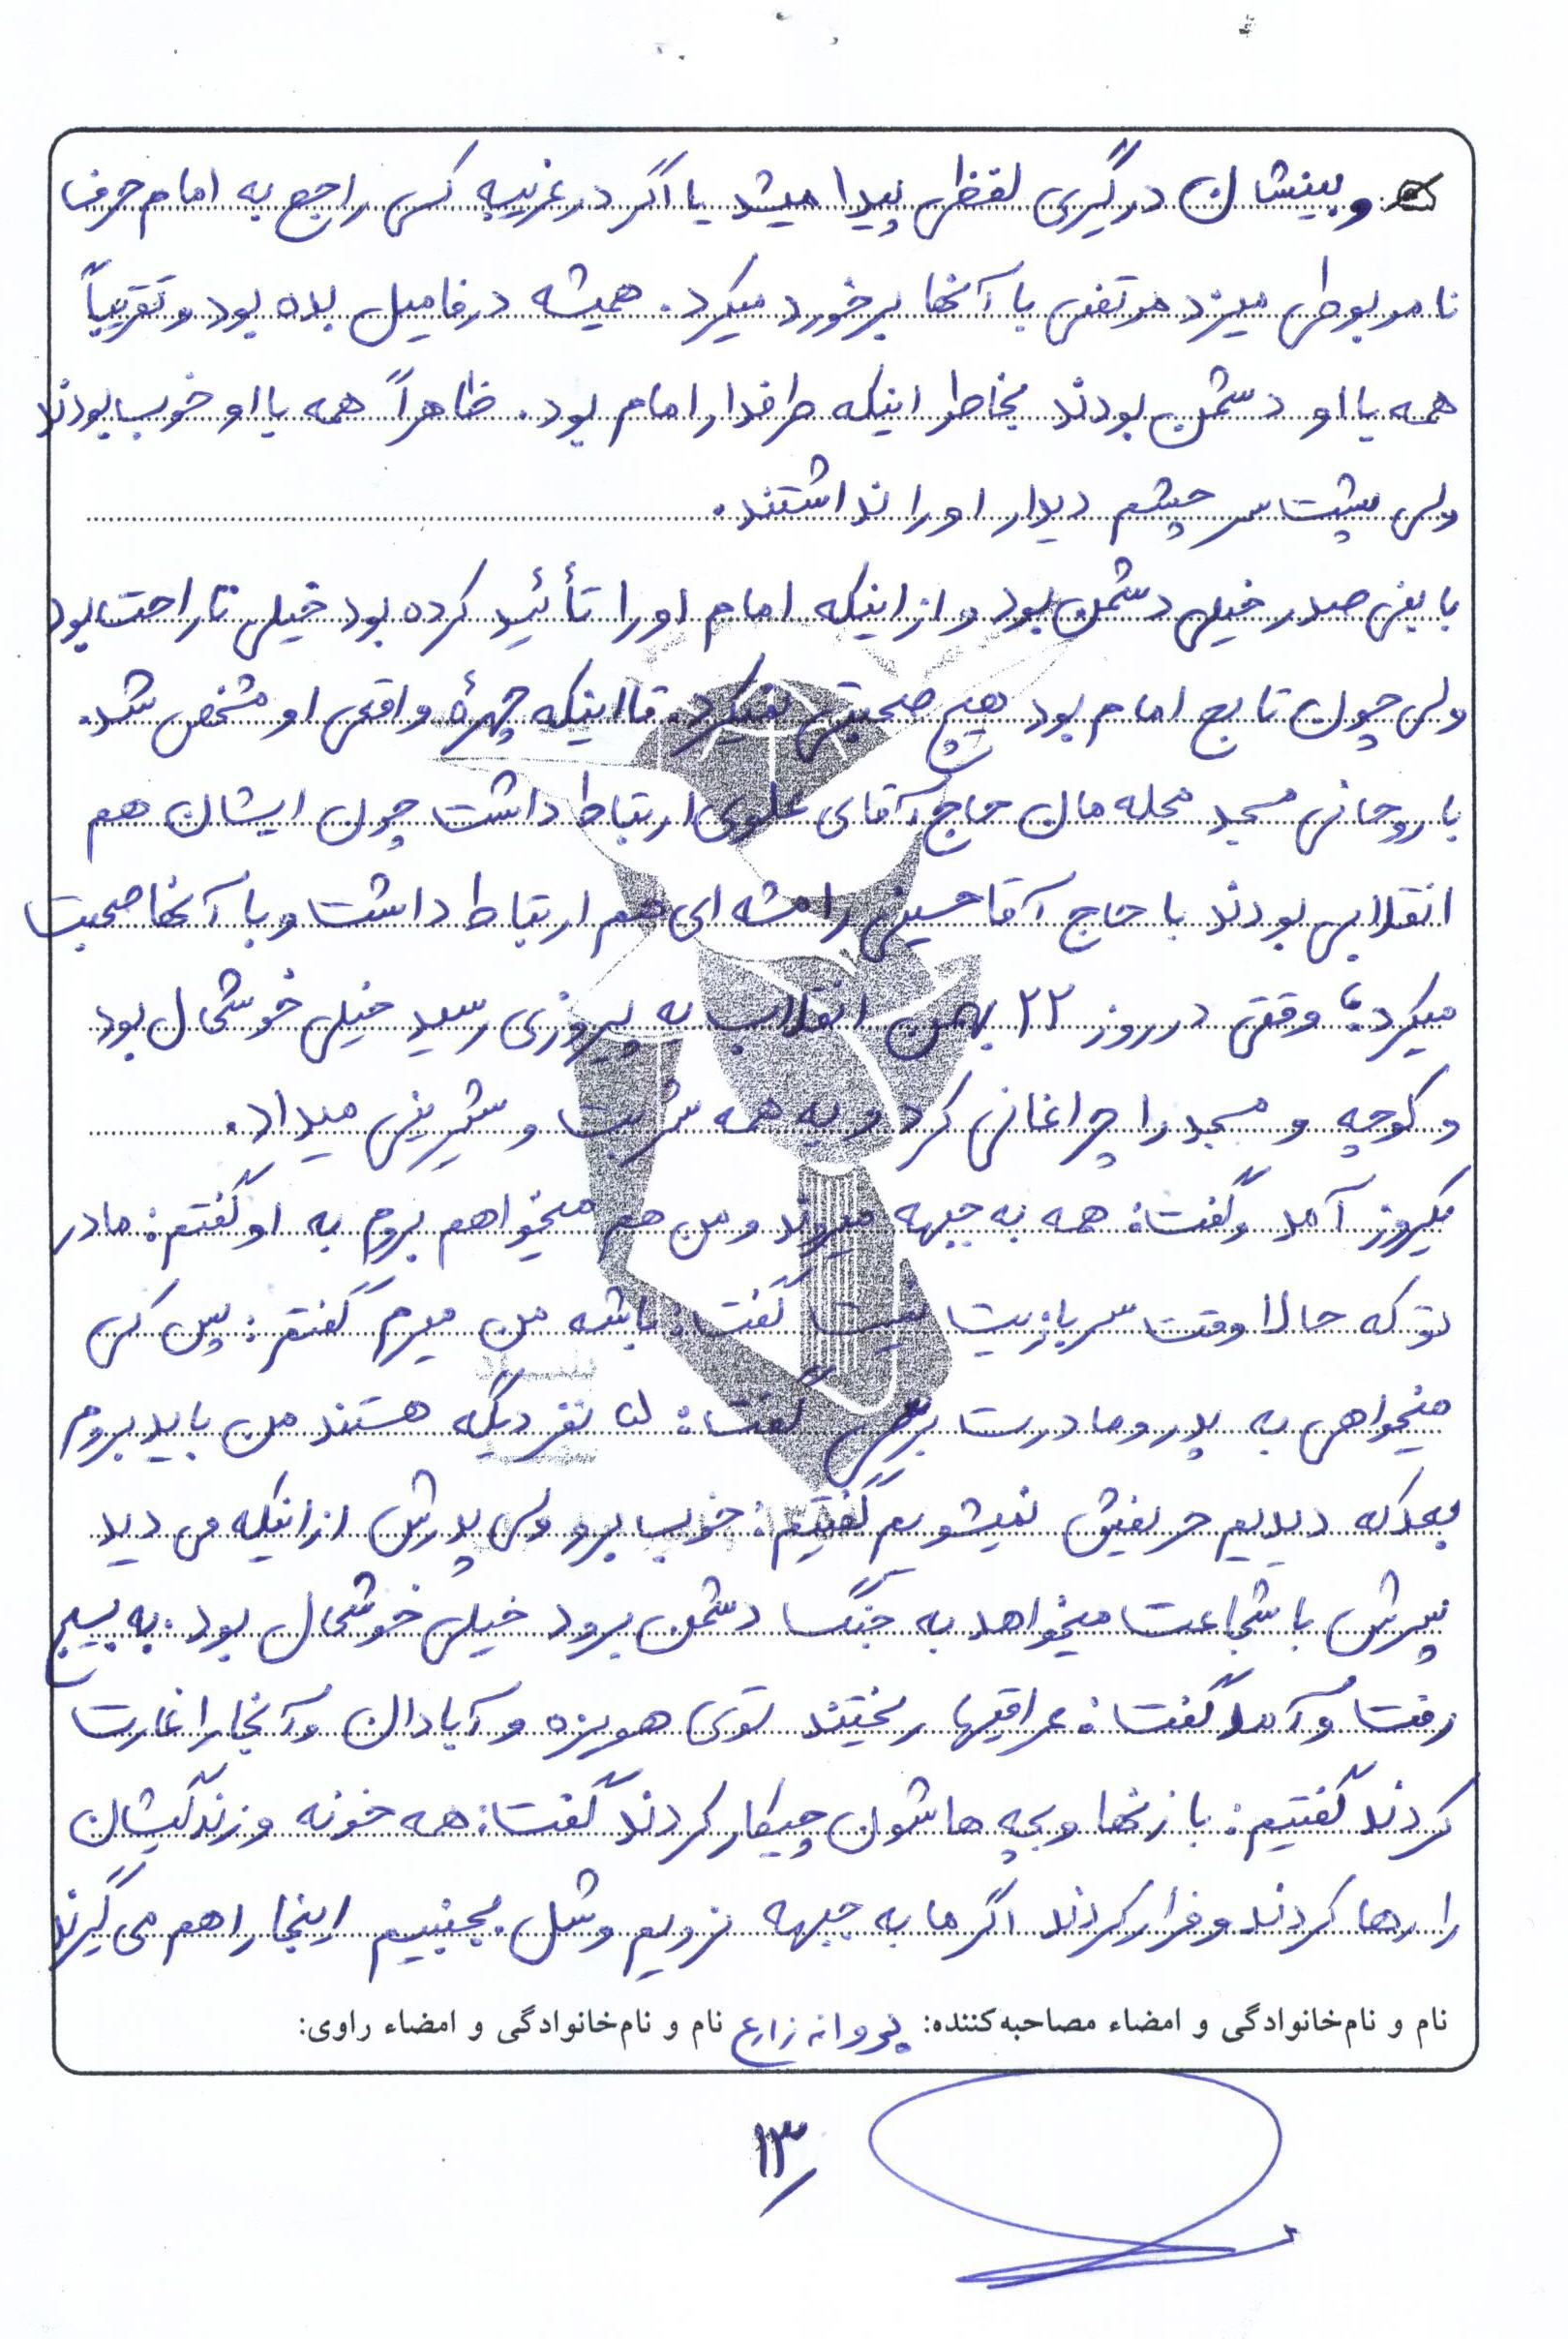 و بینشان درگیری لفظی پیدا میشد یا اگر در غریبه کسی راجع به امام حرف
نامربوطی میزد مرتضی با آنها برخورد میکرد. همیشه در فامیل بده بود و تقریباً
همه با او دشمن بودند بخاطر اینکه طرفدار امام بود. ظاهراً همه با او خوب بودند
ولی پشت سر چشم دیدار او را نداشتند.
با بنی صدر خیلی دشمن بود و از اینکه امام او را تأئید کرده بود خیلی ناراحت بود
ولی چون تابع امام بود هیچ صحبتی نمیکرد. تا اینکه چهرهٔ واقعی او مشخص شد.
با روحانی مسجد محله مان حاج آقای علوی ارتباط داشت چون ایشان هم
انقلابی بودند با حاج آقا حسینی رامشه ای هم ارتباط داشت و با آنها صحبت
میکرد، وقتی در روز ۲۲ بهمن انقلاب به پیروزی رسید خیلی خوشحال بود
و کوچه و مسجد را چراغانی کرد و به همه شربت و شیرینی میداد.
یکروز آمد و گفت: همه به جبهه میروند و من هم میخواهم بروم به او گفتم: مادر
تو که حالا وقت سربازیت نیست گفت: باشه من میرم گفتم: پس کی
میخواهی به پدر و مادرت برسی گفت: ۵ نفر دیگه هستند من باید بروم
بعد که دیدیم حریفش نمیشویم گفتیم: خوب برو ولی پدرش از اینکه می دید
پسرش با شجاعت میخواهد به جنگ دشمن برود خیلی خوشحال بود. به بسیج
رفت و آمد گفت: عراقیها ریختند توی هویزه و آبادان و آنجا را غارت
کردند گفتیم: با زنها و بچه هاشون چیکار کردند گفت: همه خونه و زندگیشان
را رها کردند و فرار کردند اگر ما به جبهه نرویم و شل بجنبیم اینجا را هم می گیرند
نام و نام‌خانوادگی و امضاء مصاحبه‌کننده: پروانه زارع نام و نام‌خانوادگی و امضاء راوی:
۱۳